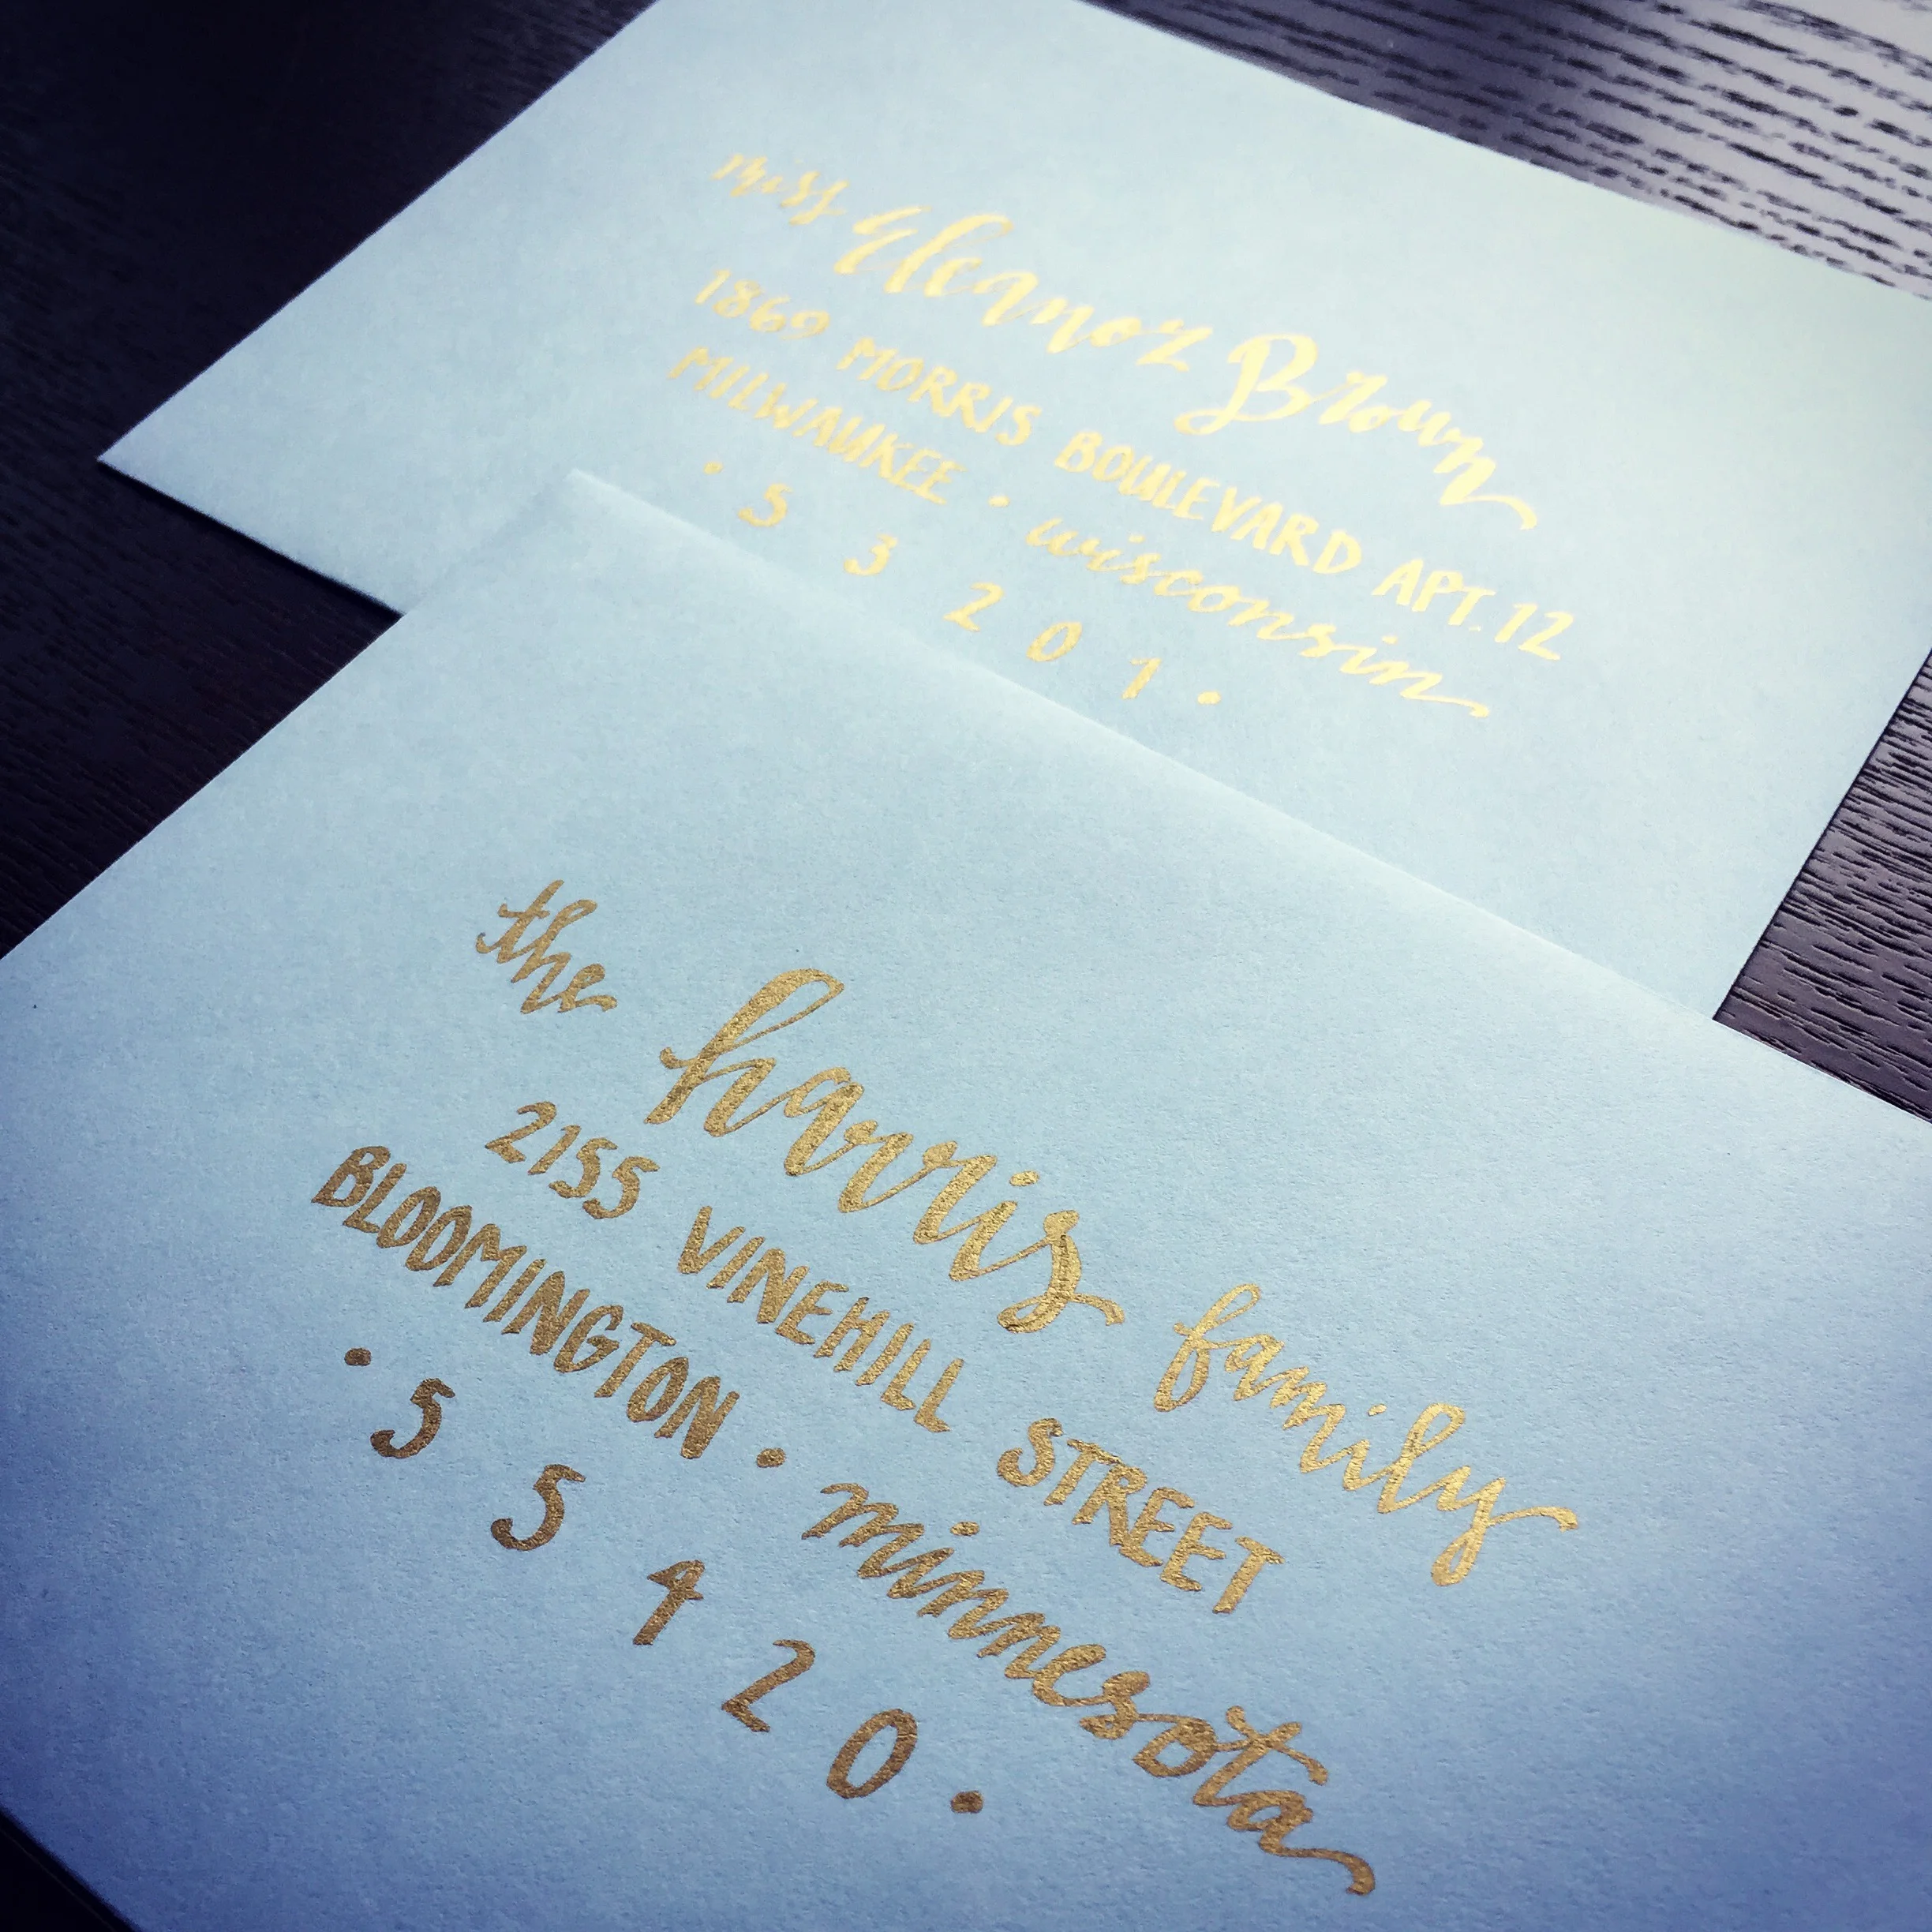 miss Eleanor Brown
1869 MORRIS BOULEVARD APT. 12
MILWAUKEE • wisconsin
• 5 3 2 0 1 •
the harris family
2155 VINEHILL STREET
BLOOMINGTON • minnesota
• 5 5 4 2 0 •